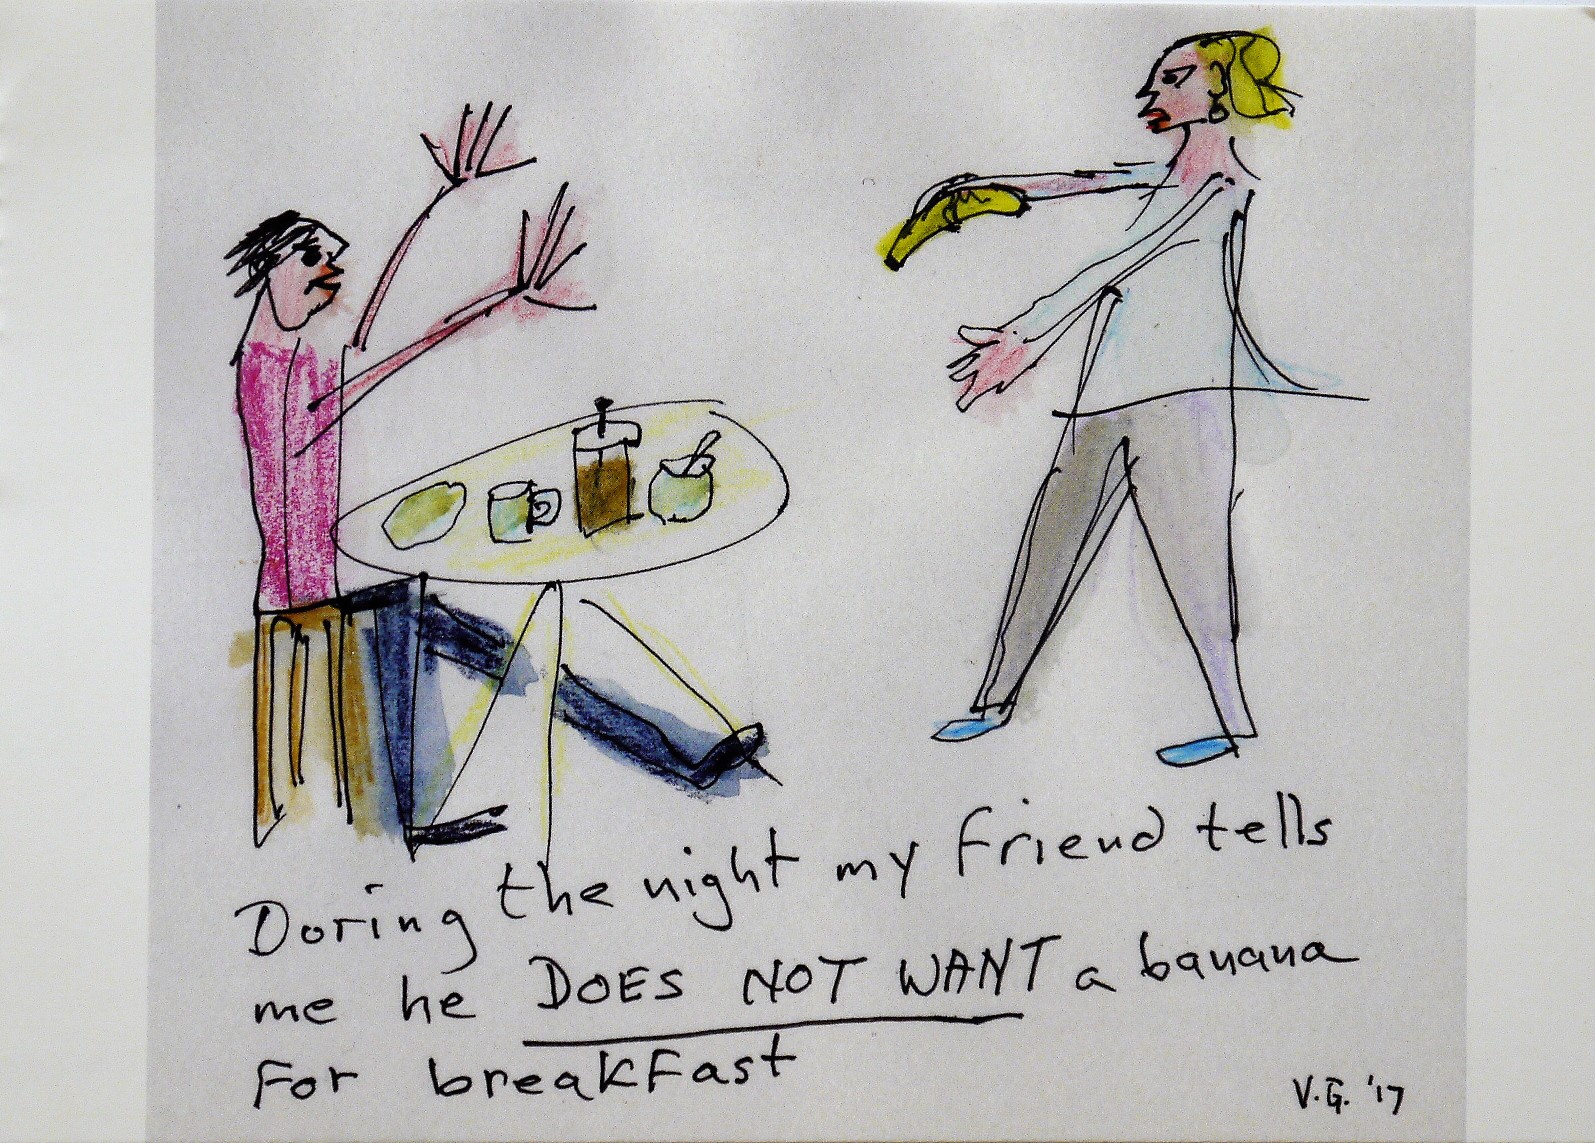 Doring the night my friend tells
me he DOES NOT WANT a banana
For breakfast
V.G. '17